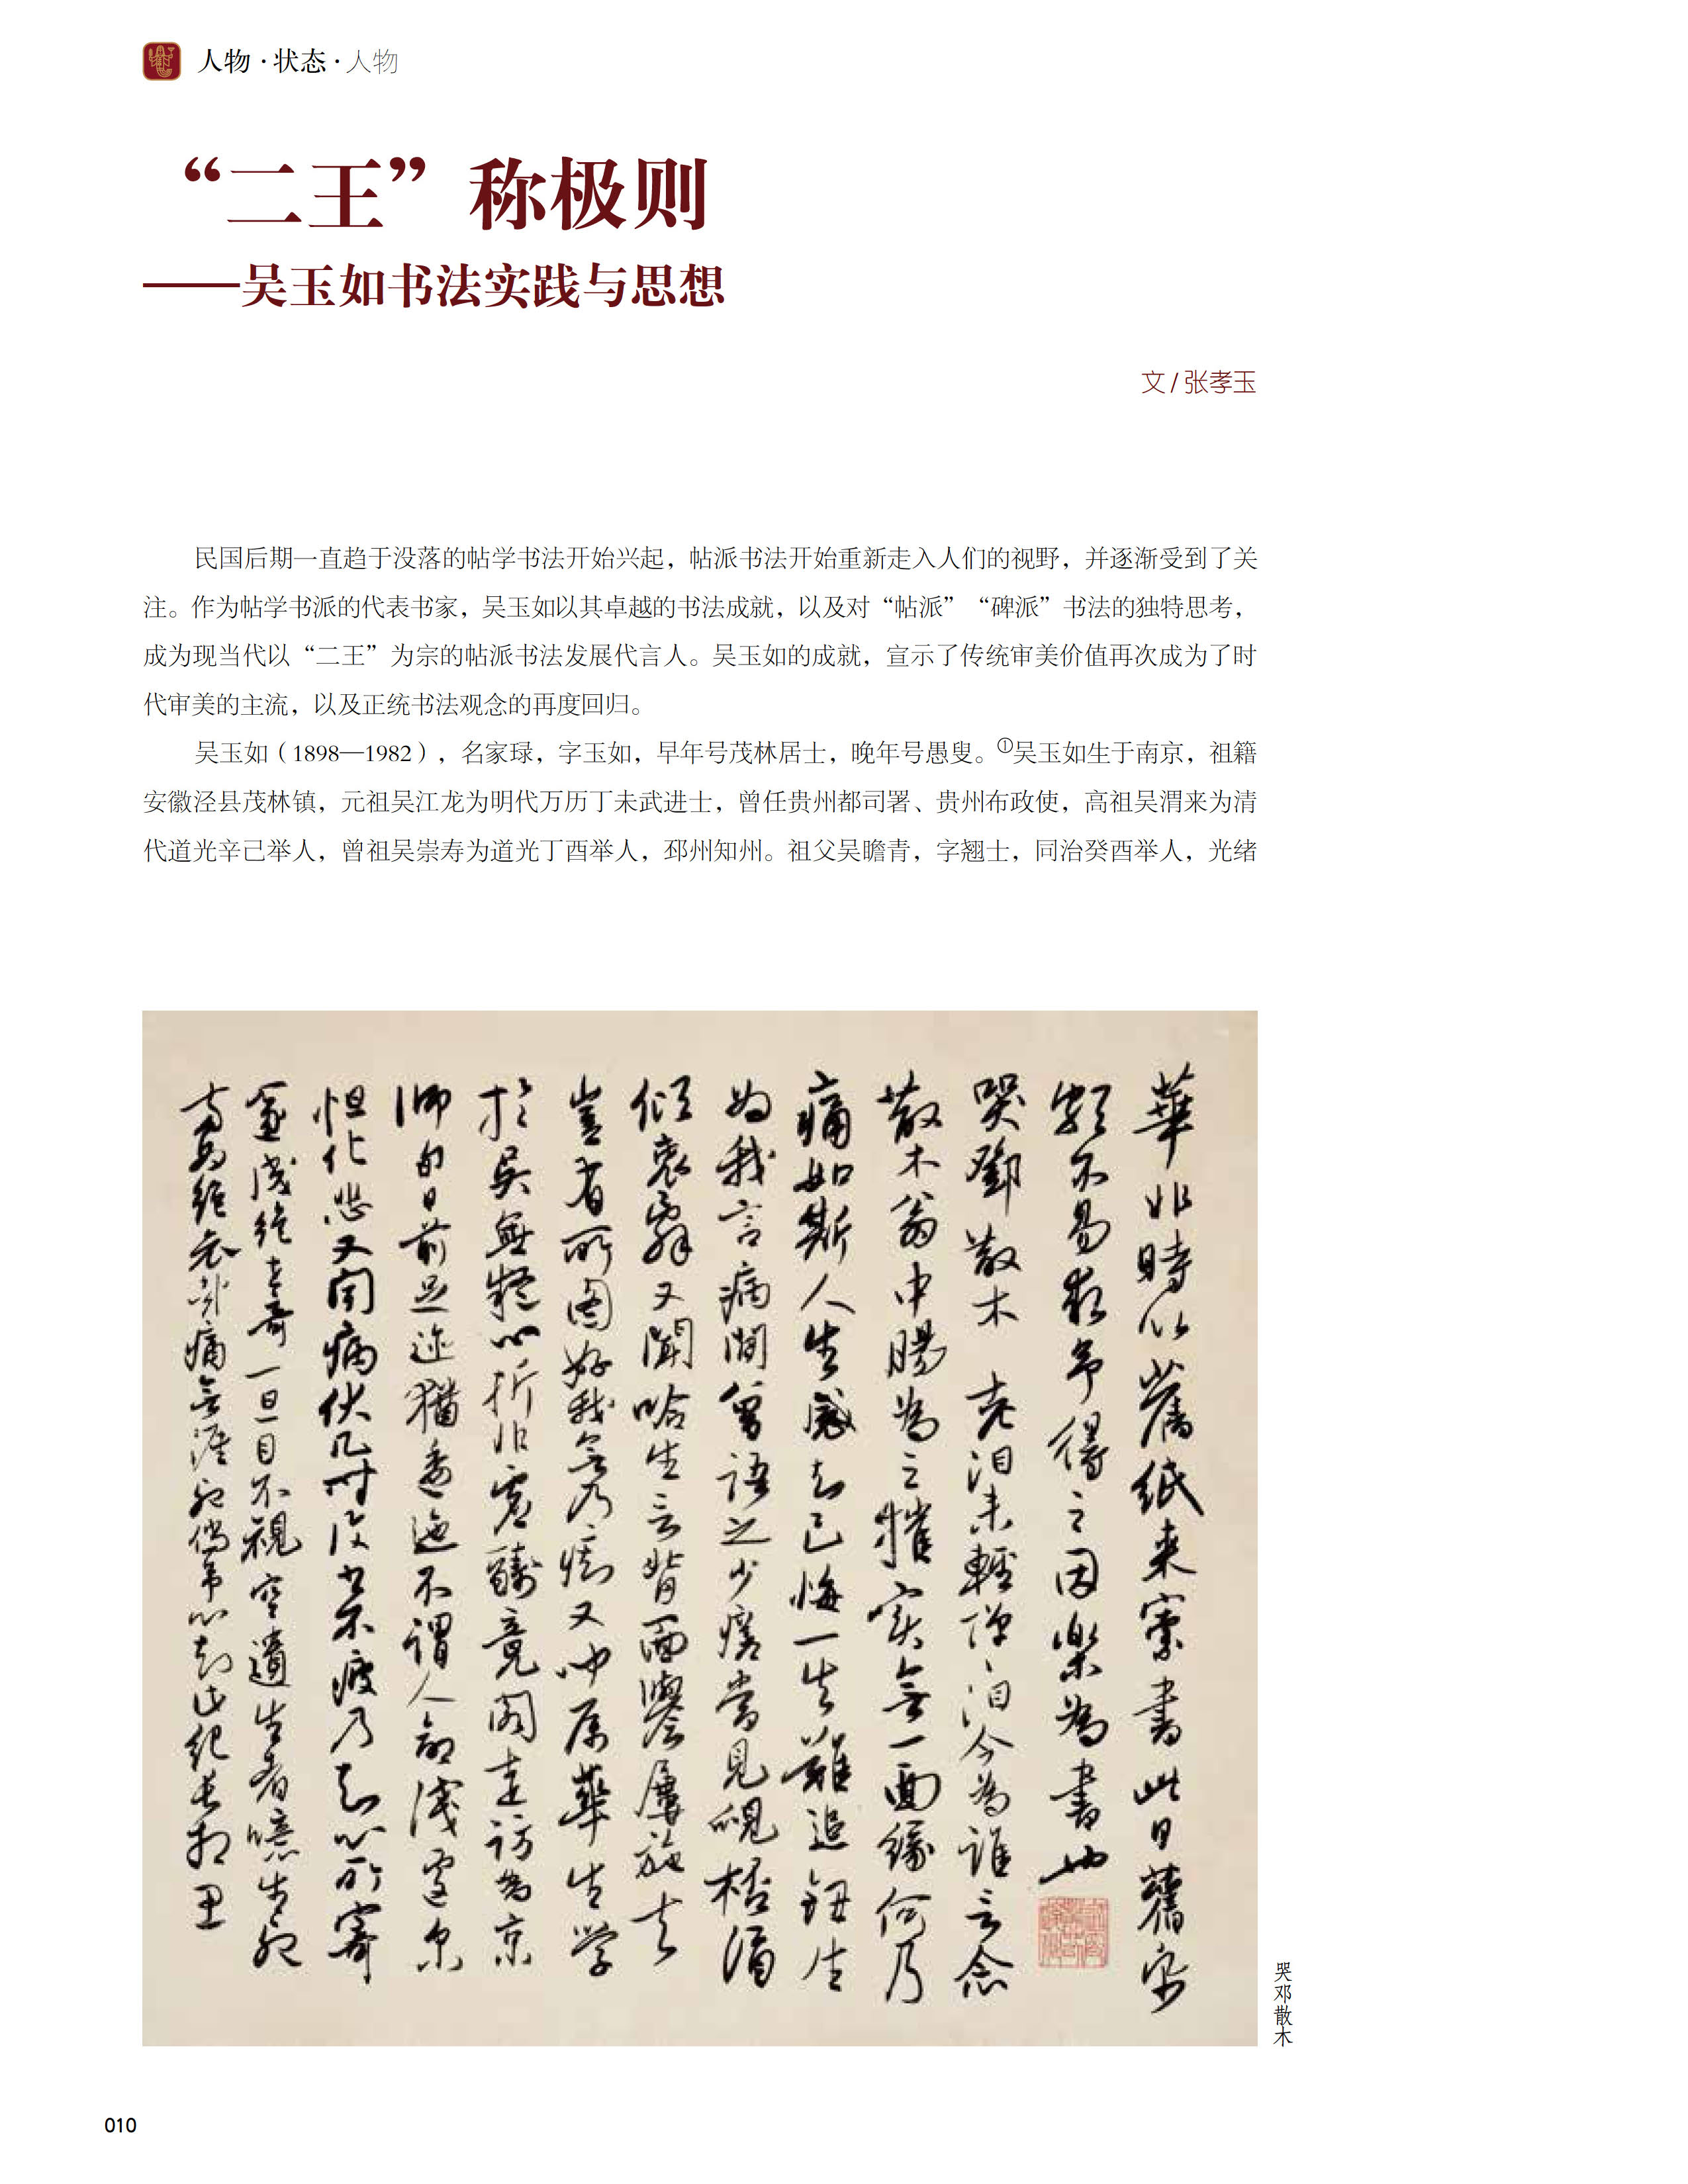 人物·状态·人物
“二王”称极则
——吴玉如书法实践与思想
文/张孝玉
民国后期一直趋于没落的帖学书法开始兴起，帖派书法开始重新走入人们的视野，并逐渐受到了关
注。作为帖学书派的代表书家，吴玉如以其卓越的书法成就，以及对“帖派”“碑派”书法的独特思考，
成为现当代以“二王”为宗的帖派书法发展代言人。吴玉如的成就，宣示了传统审美价值再次成为了时
代审美的主流，以及正统书法观念的再度回归。
吴玉如（1898—1982），名家琭，字玉如，早年号茂林居士，晚年号愚叟。①吴玉如生于南京，祖籍
安徽泾县茂林镇，元祖吴江龙为明代万历丁未武进士，曾任贵州都司署、贵州布政使，高祖吴渭来为清
代道光辛己举人，曾祖吴崇寿为道光丁酉举人，邳州知州。祖父吴瞻青，字翘士，同治癸酉举人，光绪
華非時以舊紙来索書此日舊宗
類不易致予得之因樂為書也
哭鄧散木 老泪未輕彈泪今為誰言念
散木翁中腸為之摧实無一面緣何乃
痛如斯人生感知己悔一失難追钮生
為我言病間曾語之少瘥當見
傾衷又聞哈生言背面譽屢施夫
豈有所图好我無乃痴又叩属華生学
於吴無疑心折非虚竟闵走访為京
师旬日前足迹猶委迤不謂人命浅遽尔
怛化悲又闻痛伏几时反书不疲乃知心所寄
遂成绝去奇一旦目不視空遺生者噫生死
哭邓散木
010